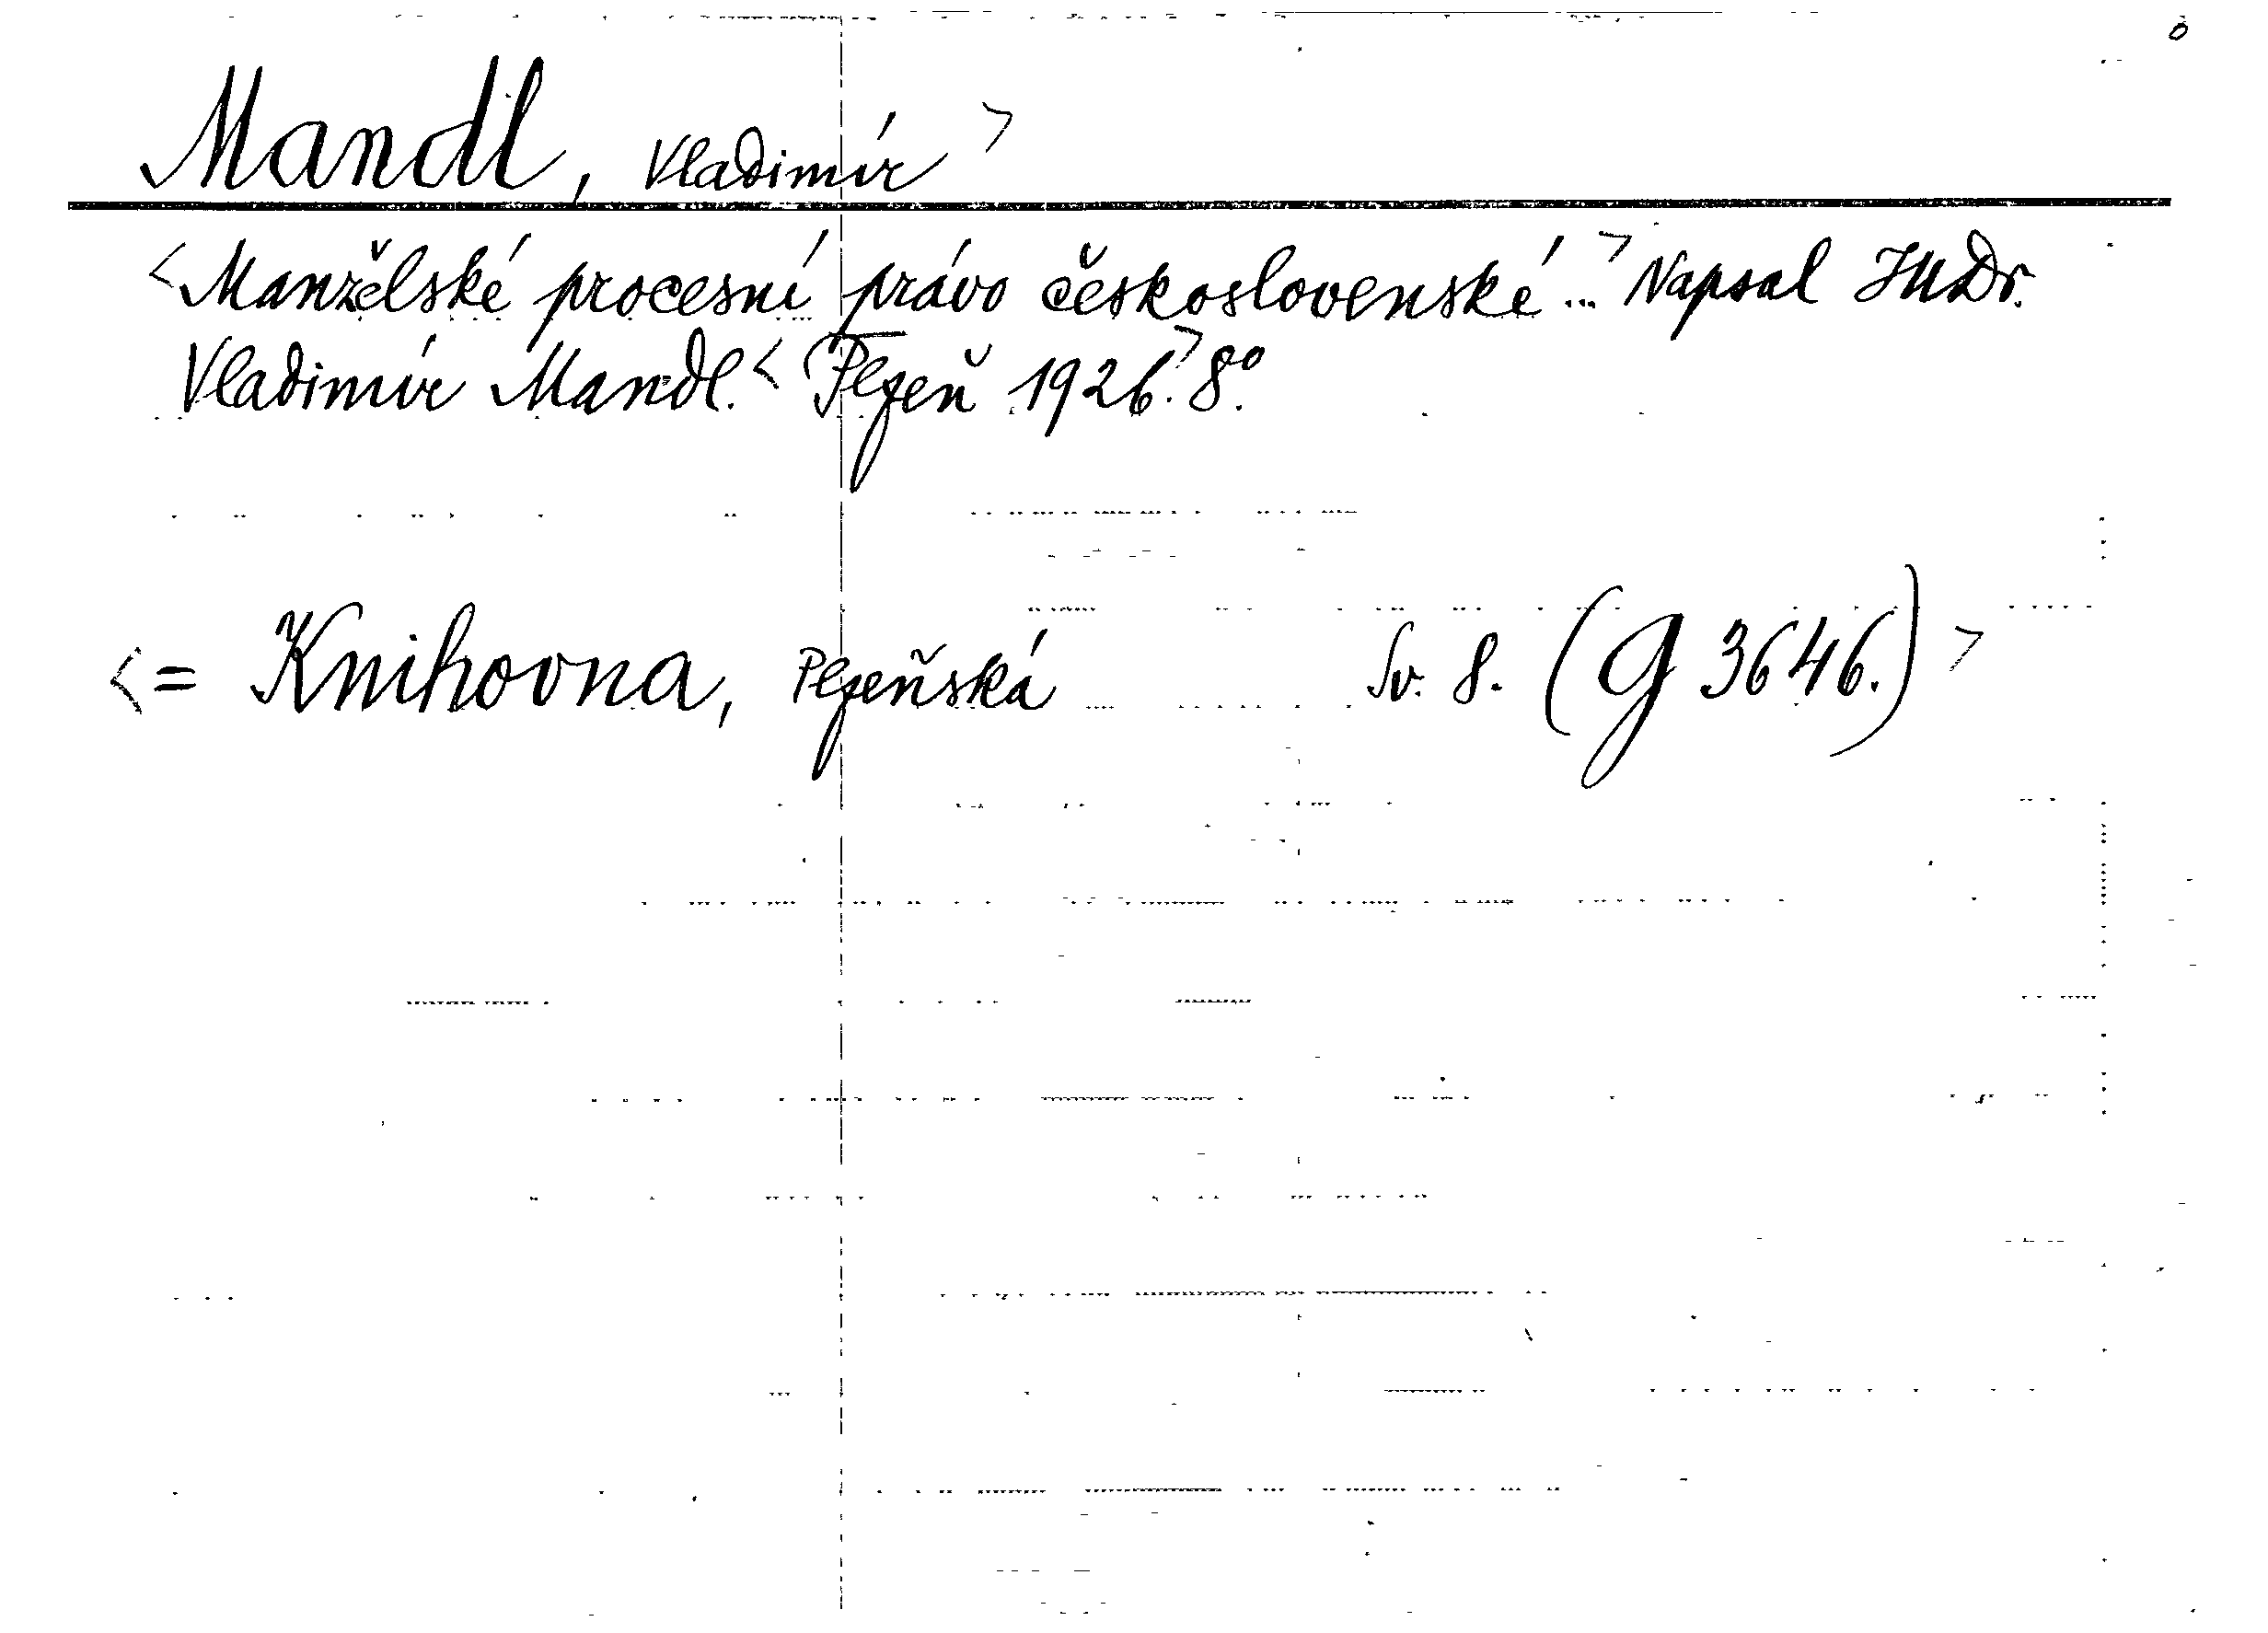 Mandl, Vladimír >
<Manželské procesní právo československé...> Napsal JUDr.
Vladimír Mandl. <Plzeň 1926.> 8°.
<= Knihovna, Plzeňská Sv. 8. (G 3646.)>